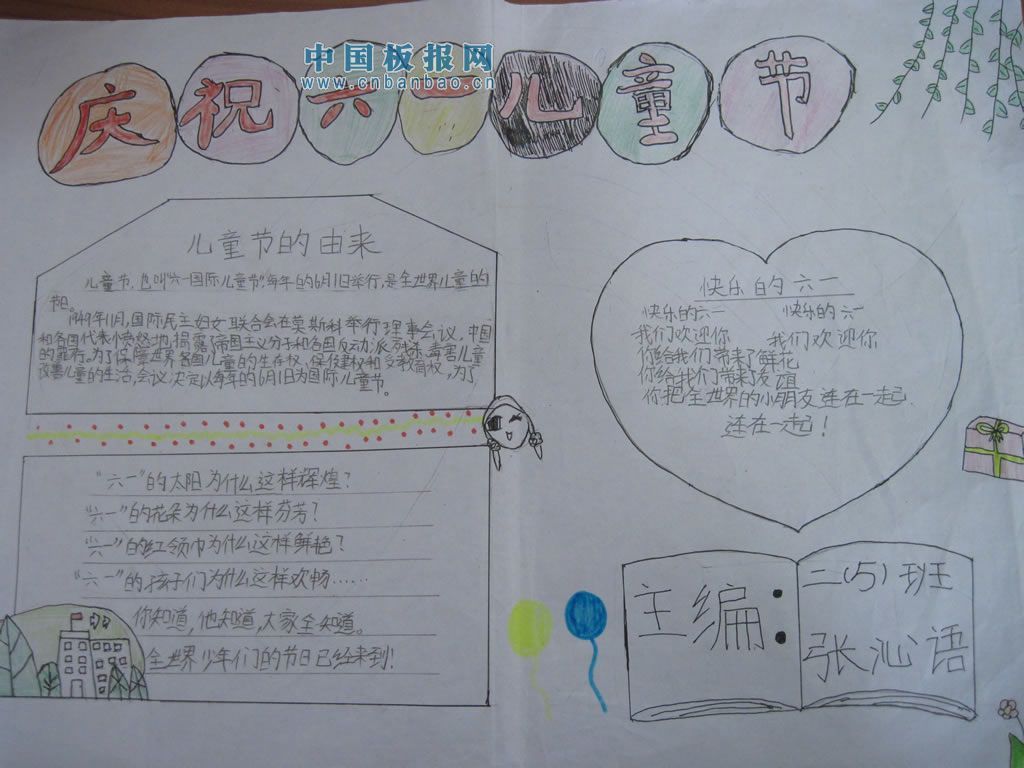 中国板报网
www.cnbanbao.cn
庆祝六一儿童节
儿童节的由来
儿童节,也叫“六一国际儿童节”,每年的6月1日举行,是全世界儿童的
节日。
1949年11月,国际民主妇女联合会在莫斯科举行理事会议,中国
和各国代表愤怒地揭露了帝国主义分子和各国反动派残杀、毒害儿童
的罪行。为了保障世界各国儿童的生存权、保健权和受教育权,为了
改善儿童的生活,会议决定以每年的6月1日为国际儿童节。
“六一”的太阳为什么这样辉煌?
“六一”的花朵为什么这样芬芳?
“六一”的红领巾为什么这样鲜艳?
“六一”的孩子们为什么这样欢畅……
你知道,他知道,大家全知道。
全世界少年们的节日已经来到!
快乐的六一
快乐的六一 快乐的六一
我们欢迎你 我们欢迎你
你给我们带来了鲜花
你给我们带来了友谊
你把全世界的小朋友连在一起、
连在一起!
主编:
二(5)班
张沁语